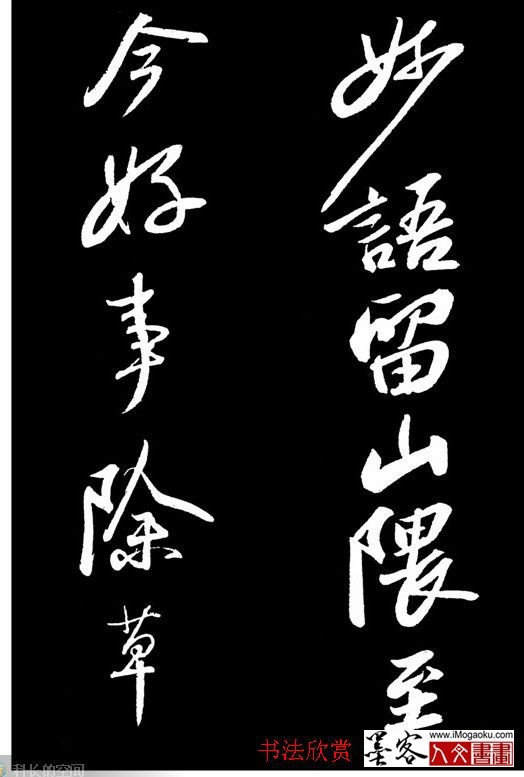 妙語留山隈至
今好事除草
书法欣赏
墨客
www.iMogaoku.com
人文書畫
科长的空间